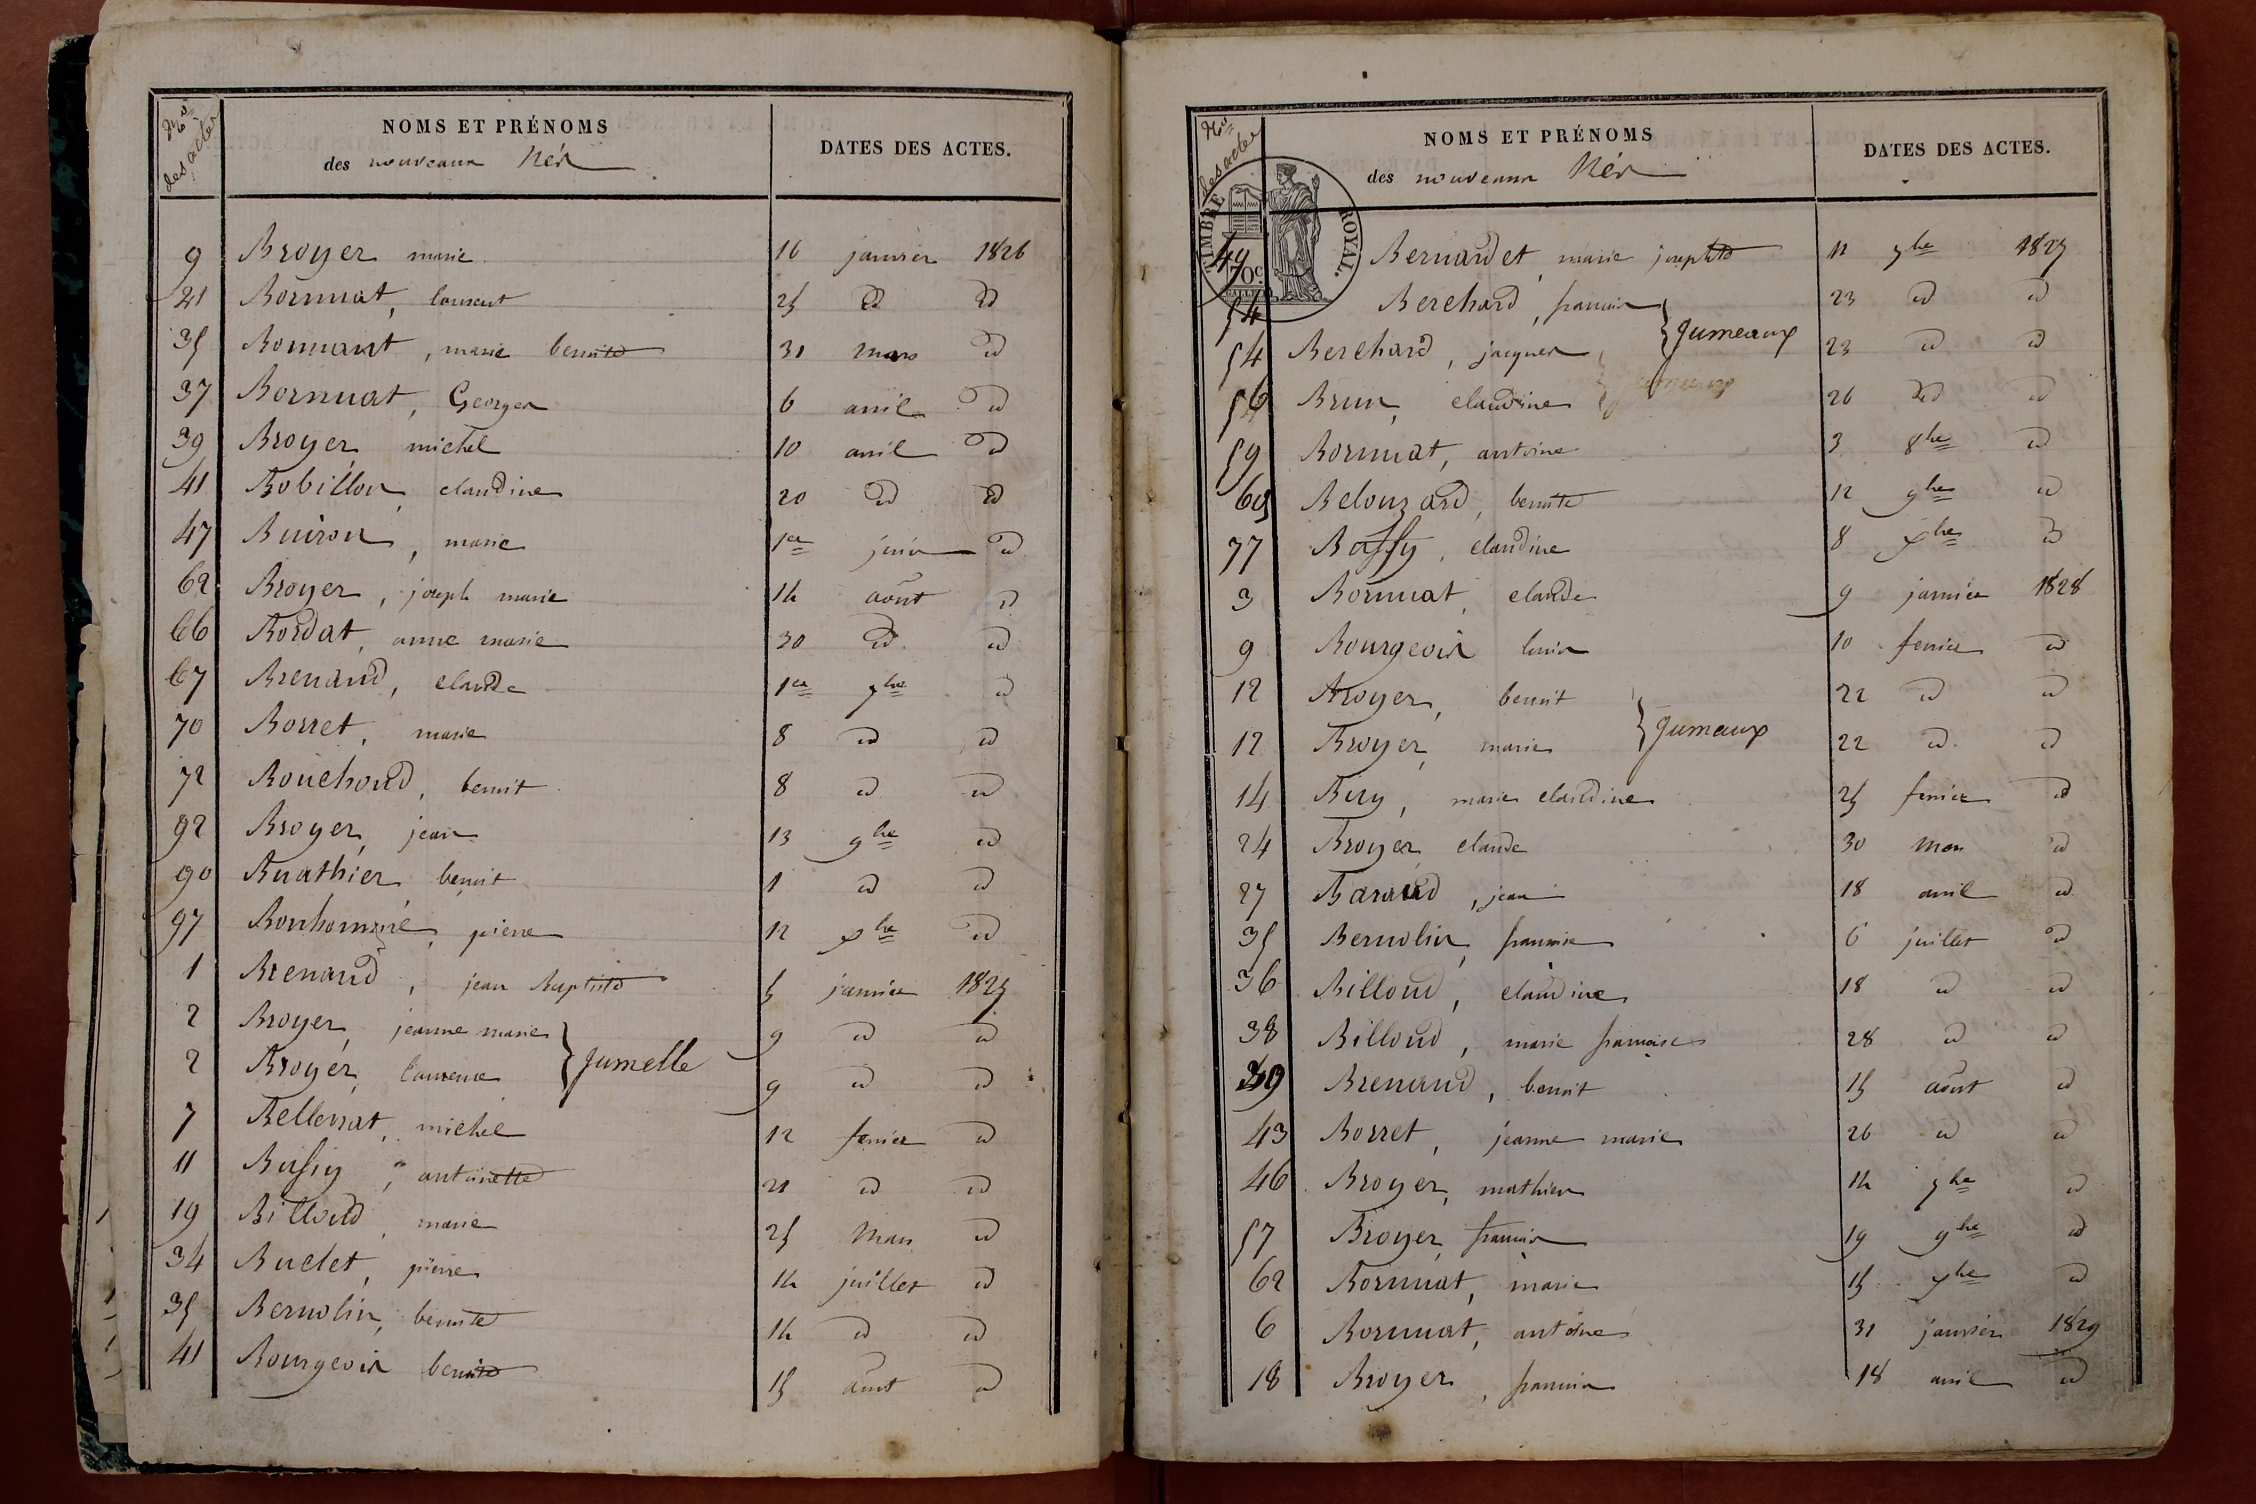 Nos des actes
NOMS ET PRÉNOMS
des nouveaux Nés
DATES DES ACTES.
9 Broyer marie 16 janvier 1826
21 Bornuat, laurent 25 id id
35 Bonnant, marie benoite 31 mars id
37 Bornuat, Georges 6 avril id
39 Broyer, michel 10 avril id
41 Robillon, claudine 20 id id
47 Buiron, marie 1er juin id
62 Broyer, joseph marie 14 août id
66 Bordat, anne marie 30 id id
67 Brenaud, claude 1er 7bre id
70 Borret, marie 8 id id
72 Bouchoud, benoit 8 id id
92 Broyer, jean 13 9bre id
90 Buathier benoit 1 id id
97 Bonhomme, pierre 12 xbre id
1 Brenaud, jean Baptiste 5 janvier 1827
2 Broyer, jeanne marie 9 id id
Jumelle
2 Broyer, laurence 9 id id
7 Bellevrat, michel 12 fevrier id
11 Bussy, antoinette 21 id id
19 Billoud, marie 25 Mars id
34 Buclet, pierre 14 juillet id
35 Bernolin, benoite 14 id id
41 Bourgeois benoite 15 août id
Nos des actes
NOMS ET PRÉNOMS
des nouveaux Nés
DATES DES ACTES.
TIMBRE ROYAL.
70c
49 Bernardet, marie josephte 11 7bre 1827
54 Berchard, francois 23 id id
Jumeaux
54 Berchard, jacques 23 id id
56 Brun, claudine 26 id id
59 Bornuat, antoine 3 8bre id
Belouzard, benoite 12 9bre id
77 Bassy, claudine 8 xbre id
3 Bornuat, claude 9 janvier 1828
9 Bourgeois louis 10 fevrier id
12 Broyer, benoit 22 id id
Jumeaux
12 Broyer, marie 22 id id
14 Biry, marie claudine 25 fevrier id
24 Broyer, claude 30 Mars id
27 Baraud, jean 18 avril id
35 Bernolin, francoise 6 juillet id
36 Billoud, claudine 18 id id
38 Billoud, marie francoise 28 id id
39 Brenaud, benoit 15 août id
43 Borret, jeanne marie 26 id id
46 Broyer, mathieu 14 7bre id
57 Broyer, francois 19 9bre id
62 Bornuat, marie 15 xbre id
6 Bornuat, antoine 31 janvier 1829
18 Broyer, francois 18 avril id